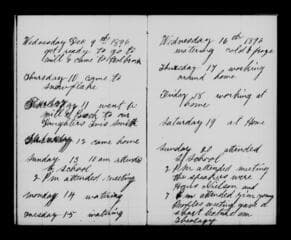 Wednesday Dec 9th 1896
got ready to go to
mill & came to
Thursday 10 came to
Snowflake
Friday 11 went to
mill & back to our
Daughters
Saturday 12 came home
Sunday 13 10 am attended
S School
2 Pm attended meeting
Monday 14 watering
Tuesday 15 watering
Wednesday 16th 1896
watering cold &
Thursday 17 working
around home
Friday 18 working at
home
Saturday 19 at Home
Sunday 20 attended
S School
2 Pm attended meeting
the speakers were
Nielson and
7 Pm attended young
Peoples meeting gave a
short lecture on
Theology